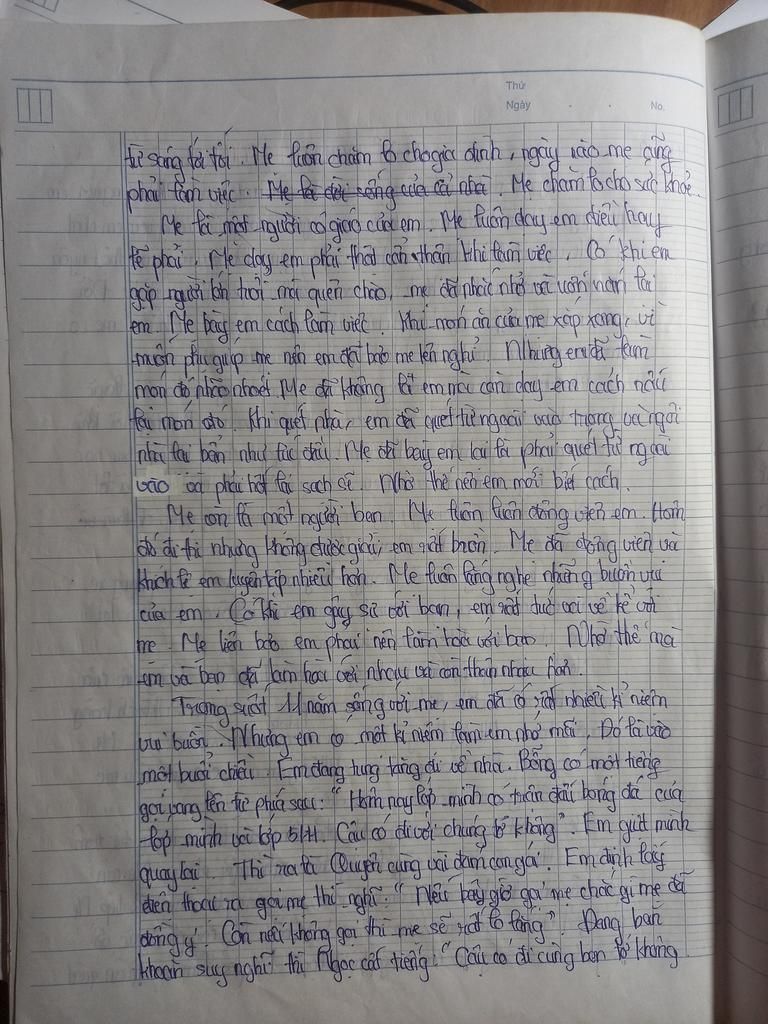 Thứ
Ngày . . No.
từ sáng tới tối. Mẹ luôn chăm lo cho gia đình, ngày nào mẹ cũng
phải làm việc. Mẹ là đời sống của cả nhà. Mẹ chăm lo cho sức khỏe.
Mẹ là một người cô giáo của em. Mẹ luôn dạy em điều hay
lẽ phải. Mẹ dạy em phải thật cẩn thân khi làm việc. Có khi em
gặp người lớn tuổi mà quên chào, mẹ đã nhắc nhở và uốn nắn lại
em. Mẹ bày em cách làm việc. Khi món ăn của mẹ xắp xong, vì
muốn phụ giúp mẹ nên em đã bảo mẹ lên nghỉ. Nhưng em đã làm
món đó nhão nhoét. Mẹ đã không la em mà còn dạy em cách nấu
lại món đó. Khi quét nhà, em đã quét từ ngoài vào trong và ngôi
nhà lại bẩn như lúc đầu. Mẹ đã bày em lại là phải quét từ ngoài
vào và phải hốt lại sạch sẽ. Nhờ thế nên em mới biết cách.
Mẹ còn là một người bạn. Mẹ luôn luôn động viên em. Hôm
đó đi thi nhưng không được giải, em rất buồn. Mẹ đã động viên và
khích lệ em luyện tập nhiều hơn. Mẹ luôn lắng nghe những buồn vui
của em. Có khi em gây sự với bạn, em rất tức và về kể với
mẹ. Mẹ liền bảo em phải nên làm hòa với bạn. Nhờ thế mà
em và bạn đã làm hòa với nhau và còn thân nhau hơn.
Trong suốt 11 năm sống với mẹ, em đã có rất nhiều kỉ niệm
vui buồn. Nhưng em có một kỉ niệm làm em nhớ mãi. Đó là vào
một buổi chiều. Em đang tung tăng đi về nhà. Bỗng có một tiếng
gọi vang lên từ phía sau: "Hôm nay lớp mình có trận đấu bóng đá của
lớp mình với lớp 5/4. Cậu có đi với chúng tớ không". Em giật mình
quay lại. Thì ra là Quyên cùng vài đám con gái. Em định lấy
điện thoại ra gọi mẹ thì nghĩ: "Nếu bây giờ gọi mẹ chắc gì mẹ đã
đồng ý. Còn nếu không gọi thì mẹ sẽ rất lo lắng". Đang băn
khoăn suy nghĩ thì Ngọc cất tiếng: "Cậu có đi cùng bọn tớ không